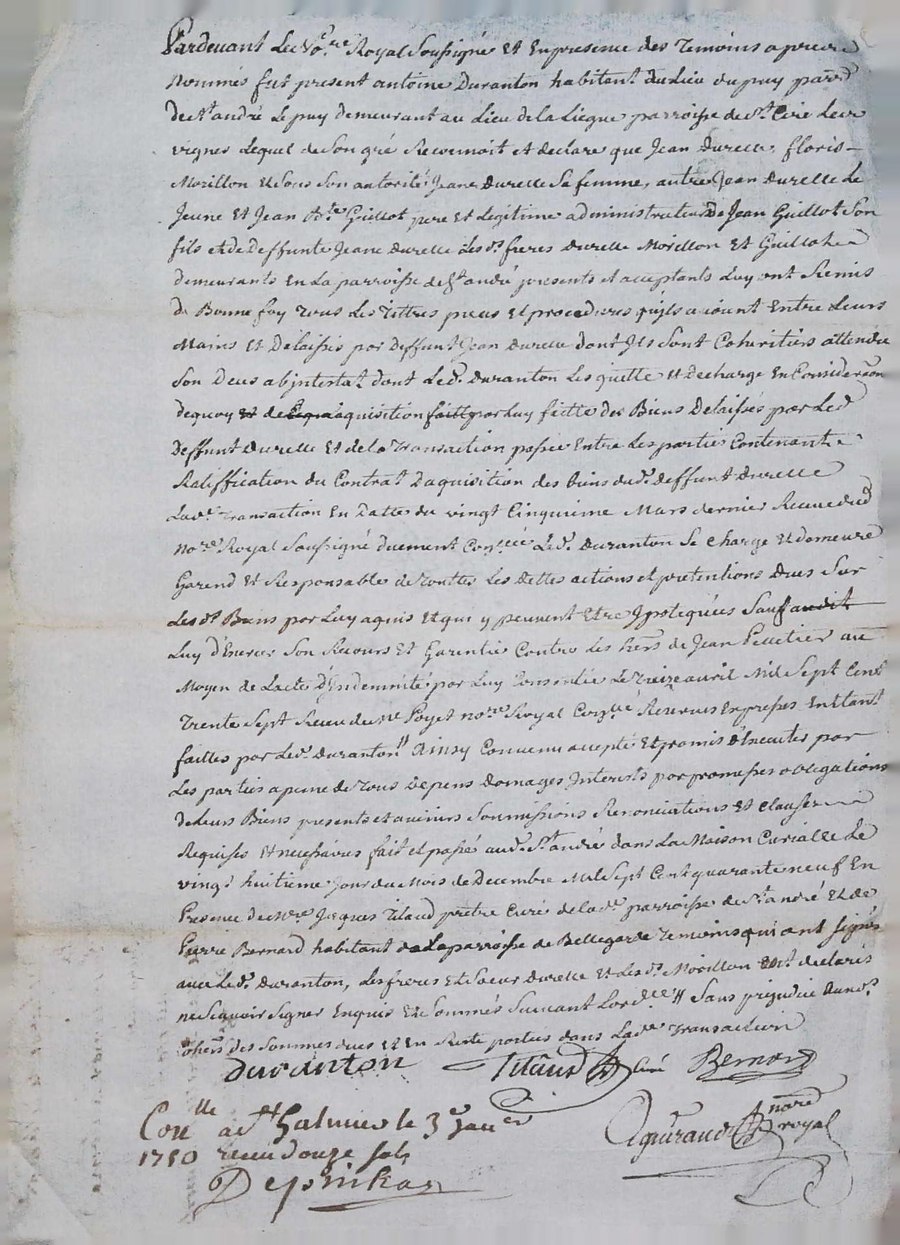 Pardevant Le No.re Royal Soussigné Et En presence des Temoins apres
nommés fut present antoine Duranton habitant du Lieu du puy parr.
de st andré Le puy demeurant au Lieu de la Liegue parroisse de st. Ciré Le
vigner Lequel de Son gré Reconnoit et declare que Jean Durelle, floris
Morillon Et Sous Son autorité Jeane Durelle Sa femme, autre Jean Durelle Le
Jeune Et Jean B.te Guillot pere Et Legitime administrateur De Jean Guillot Son
fils et de deffunte Jeane durelle Les d. freres durelle Morillon Et Guillot
demeurants En La parroisse de St andré presents et acceptants Luy ont Remis
de Bonne foy Tous Les Tittres pieces Et procedures quils avoient Entre Leurs
Mains Et Delaissés par Deffunt Jean durelle dont Ils Sont Coheritiers attendu
Son Deces abintestat dont Led. Duranton Les quitte Et decharge En Consideraon
dequoy et de aquisition faitte par Luy faitte des Biens Delaissés par Led
Deffunt Durelle Et de la Transaction passée Entre Les parties Contenant
Ratiffication du Contrat Daquisition des biens dud. deffunt Durelle
Lad. Transaction En Datte du vingt Cinquieme Mars dernier Receue dud
no.re Royal Soussigné duement Led. Duranton Se Charge Et demeure
Garend Et Responsable de Touttes Les dettes actions et pretentions dues Sur
Les d. Biens par Luy aquis Et qui y peuvent Etre Ipotequées Sauf audit
Luy d'Exercer Son Recours Et Garentie Contre Les hers de Jean Pelletier au
Moyen de Lacte d'Indemnité par Luy Consentie Le Treize avril Mil Sept Cent
Trente Sept Receu de me Poyet no.re Royal Reserves Expresses En tant
faittes par Led. Duranton // Ainsy Convenu accepté Et promis d'Executer par
Les parties a peine de Tous Depens Domages Interests par promesses obligations
de Leurs Biens presents et avenirs Soumissions Renonciations Et Clauses
Requises Et necessaires fait et passé aud. St andré dans La Maison Curialle Le
vingt huitieme Jour du Mois de Decembre Mil Sept Cent quarante neuf En
Presence de M.re Jacques Titaud pretre Curé de lad. parroisse de St andré Et de
Pierre Bernard habitant de La parroisse de Bellegarde Temoins qui ont Signés
avec Led. Duranton, Les freres Et Soeur Durelle Et Led. Morillon ont declarés
ne Sçavoir Signer Enquis Et Sommés Suivant Lord.ce // Sans prejudice
des Sommes dues Et En Reste portées dans Lad. Transaction
duranton Titaud Curé Bernard
Con.lle a st Galmier le 3e Janer
1750 receu douze sols
nore royal